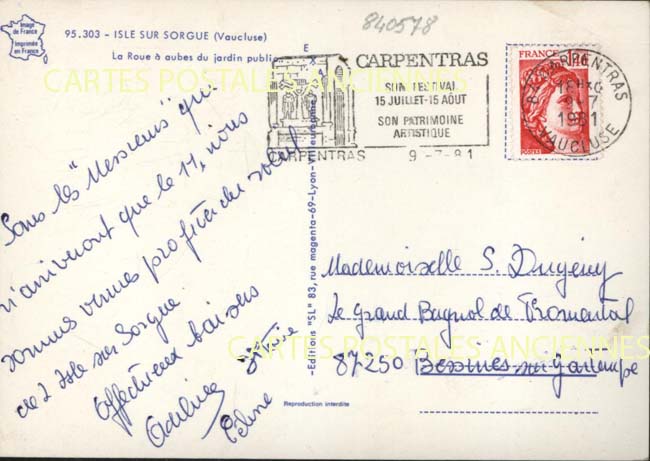 840578
Image
de France
Imprimée
en France
95.303 - ISLE SUR SORGUE (Vaucluse)
La Roue à aubes du jardin publi
CARTES POSTALES ANCIENNES
Sans les "Messieurs" qui
n'arriveront que le 11, nous
sommes venues profiter du soleil
de l'Isle sur Sorgue.
Affectueux baisers
Céline
-Editions "SL" 83, rue magenta-69-Lyon-Villeurbanne
Reproduction interdite
CARPENTRAS
SON FESTIVAL
15 JUILLET-15 AOUT
SON PATRIMOINE
ARTISTIQUE
CARPENTRAS 9-7-81
FRANCE
POSTES
84 CARPENTRAS
18H
9-7
1981
VAUCLUSE
Mademoiselle S. Dugény
Le Grand Bagnol de Fromental
87250 Bessines-sur-Gartempe
CARTES POSTALES ANCIENNES